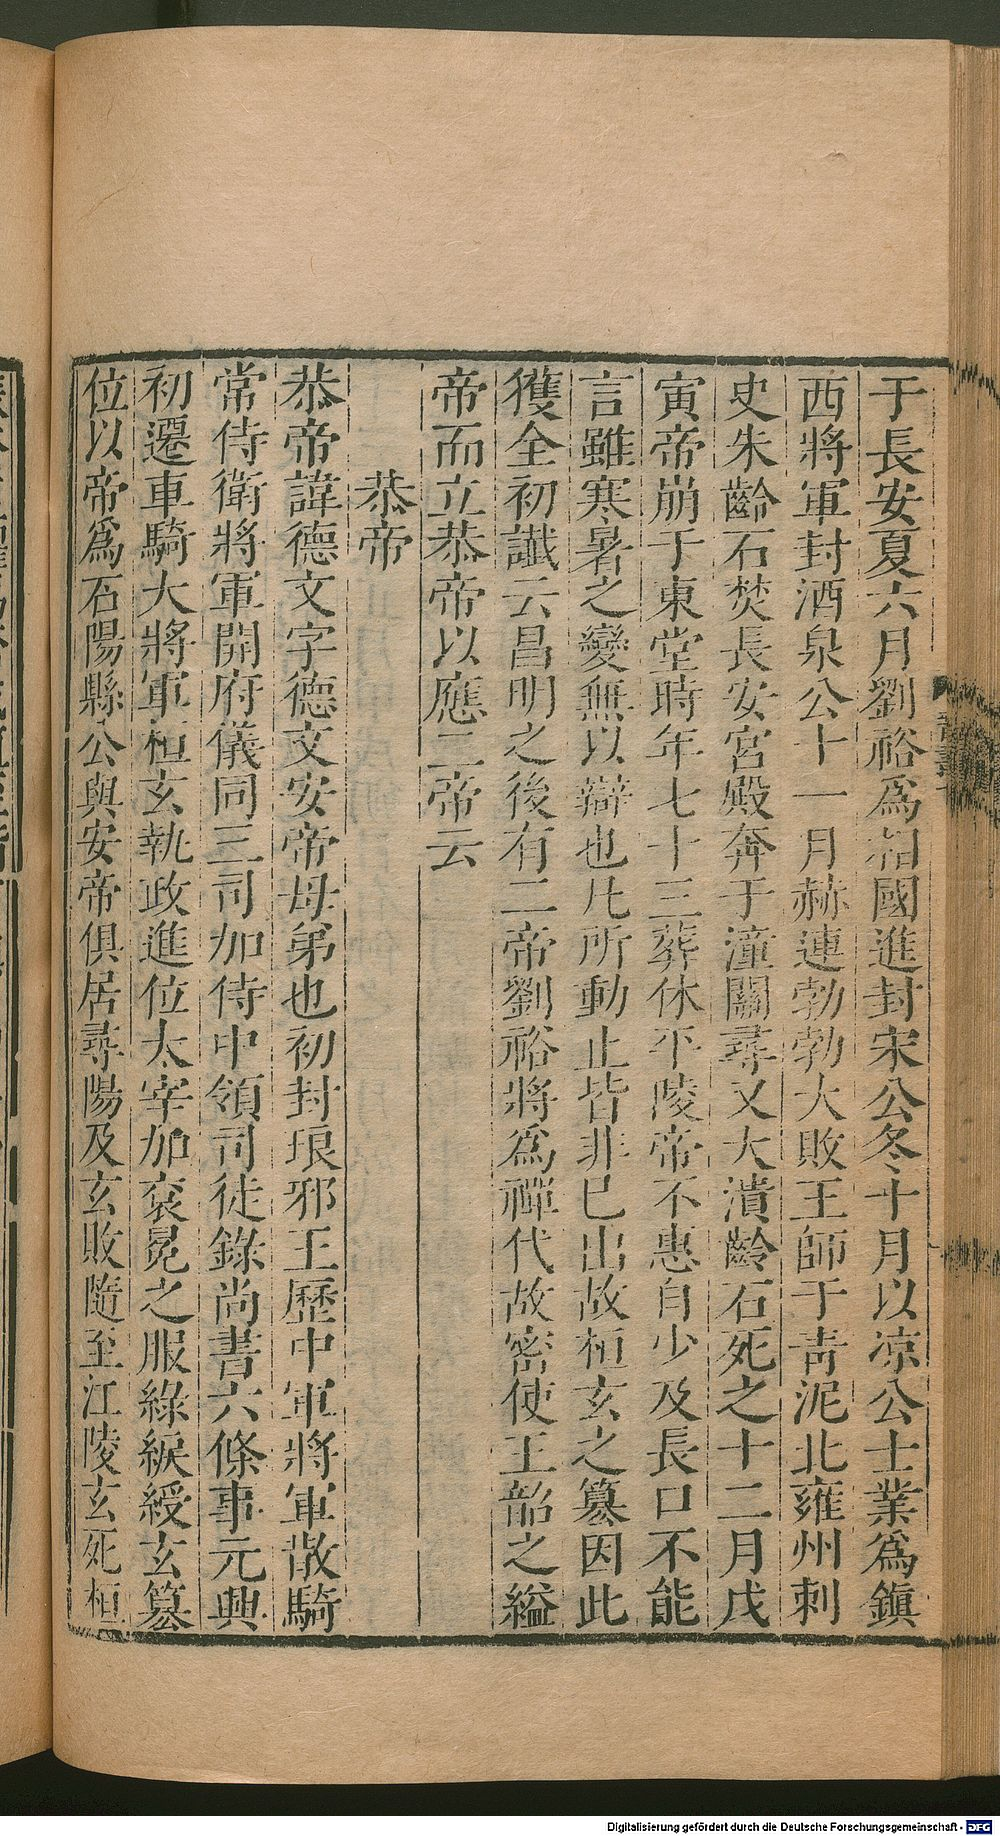 于長安夏六月劉裕為相國進封宋公冬十月以凉公士業為鎮
西將軍封酒泉公十一月赫連勃勃大敗王師于青泥北雍州刺
史朱齡石焚長安宮殿奔于潼關尋又大潰齡石死之十二月戊
寅帝崩于東堂時年七十三葬休平陵帝不惠自少及長口不能
言雖寒暑之變無以辯也凡所動止皆非已出故桓玄之簒因此
獲全初讖云昌明之後有二帝劉裕將為禪代故密使王韶之縊
帝而立恭帝以應二帝云
恭帝
恭帝諱德文字德文安帝母弟也初封琅邪王歷中軍將軍散騎
常侍衛將軍開府儀同三司加侍中領司徒錄尚書六條事元興
初遷車騎大將軍桓玄執政進位太宰加衮冕之服綠綟綬玄簒
位以帝為石陽縣公與安帝俱居尋陽及玄敗隨至江陵玄死桓
Digitalisierung gefördert durch die Deutsche Forschungsgemeinschaft - DFG